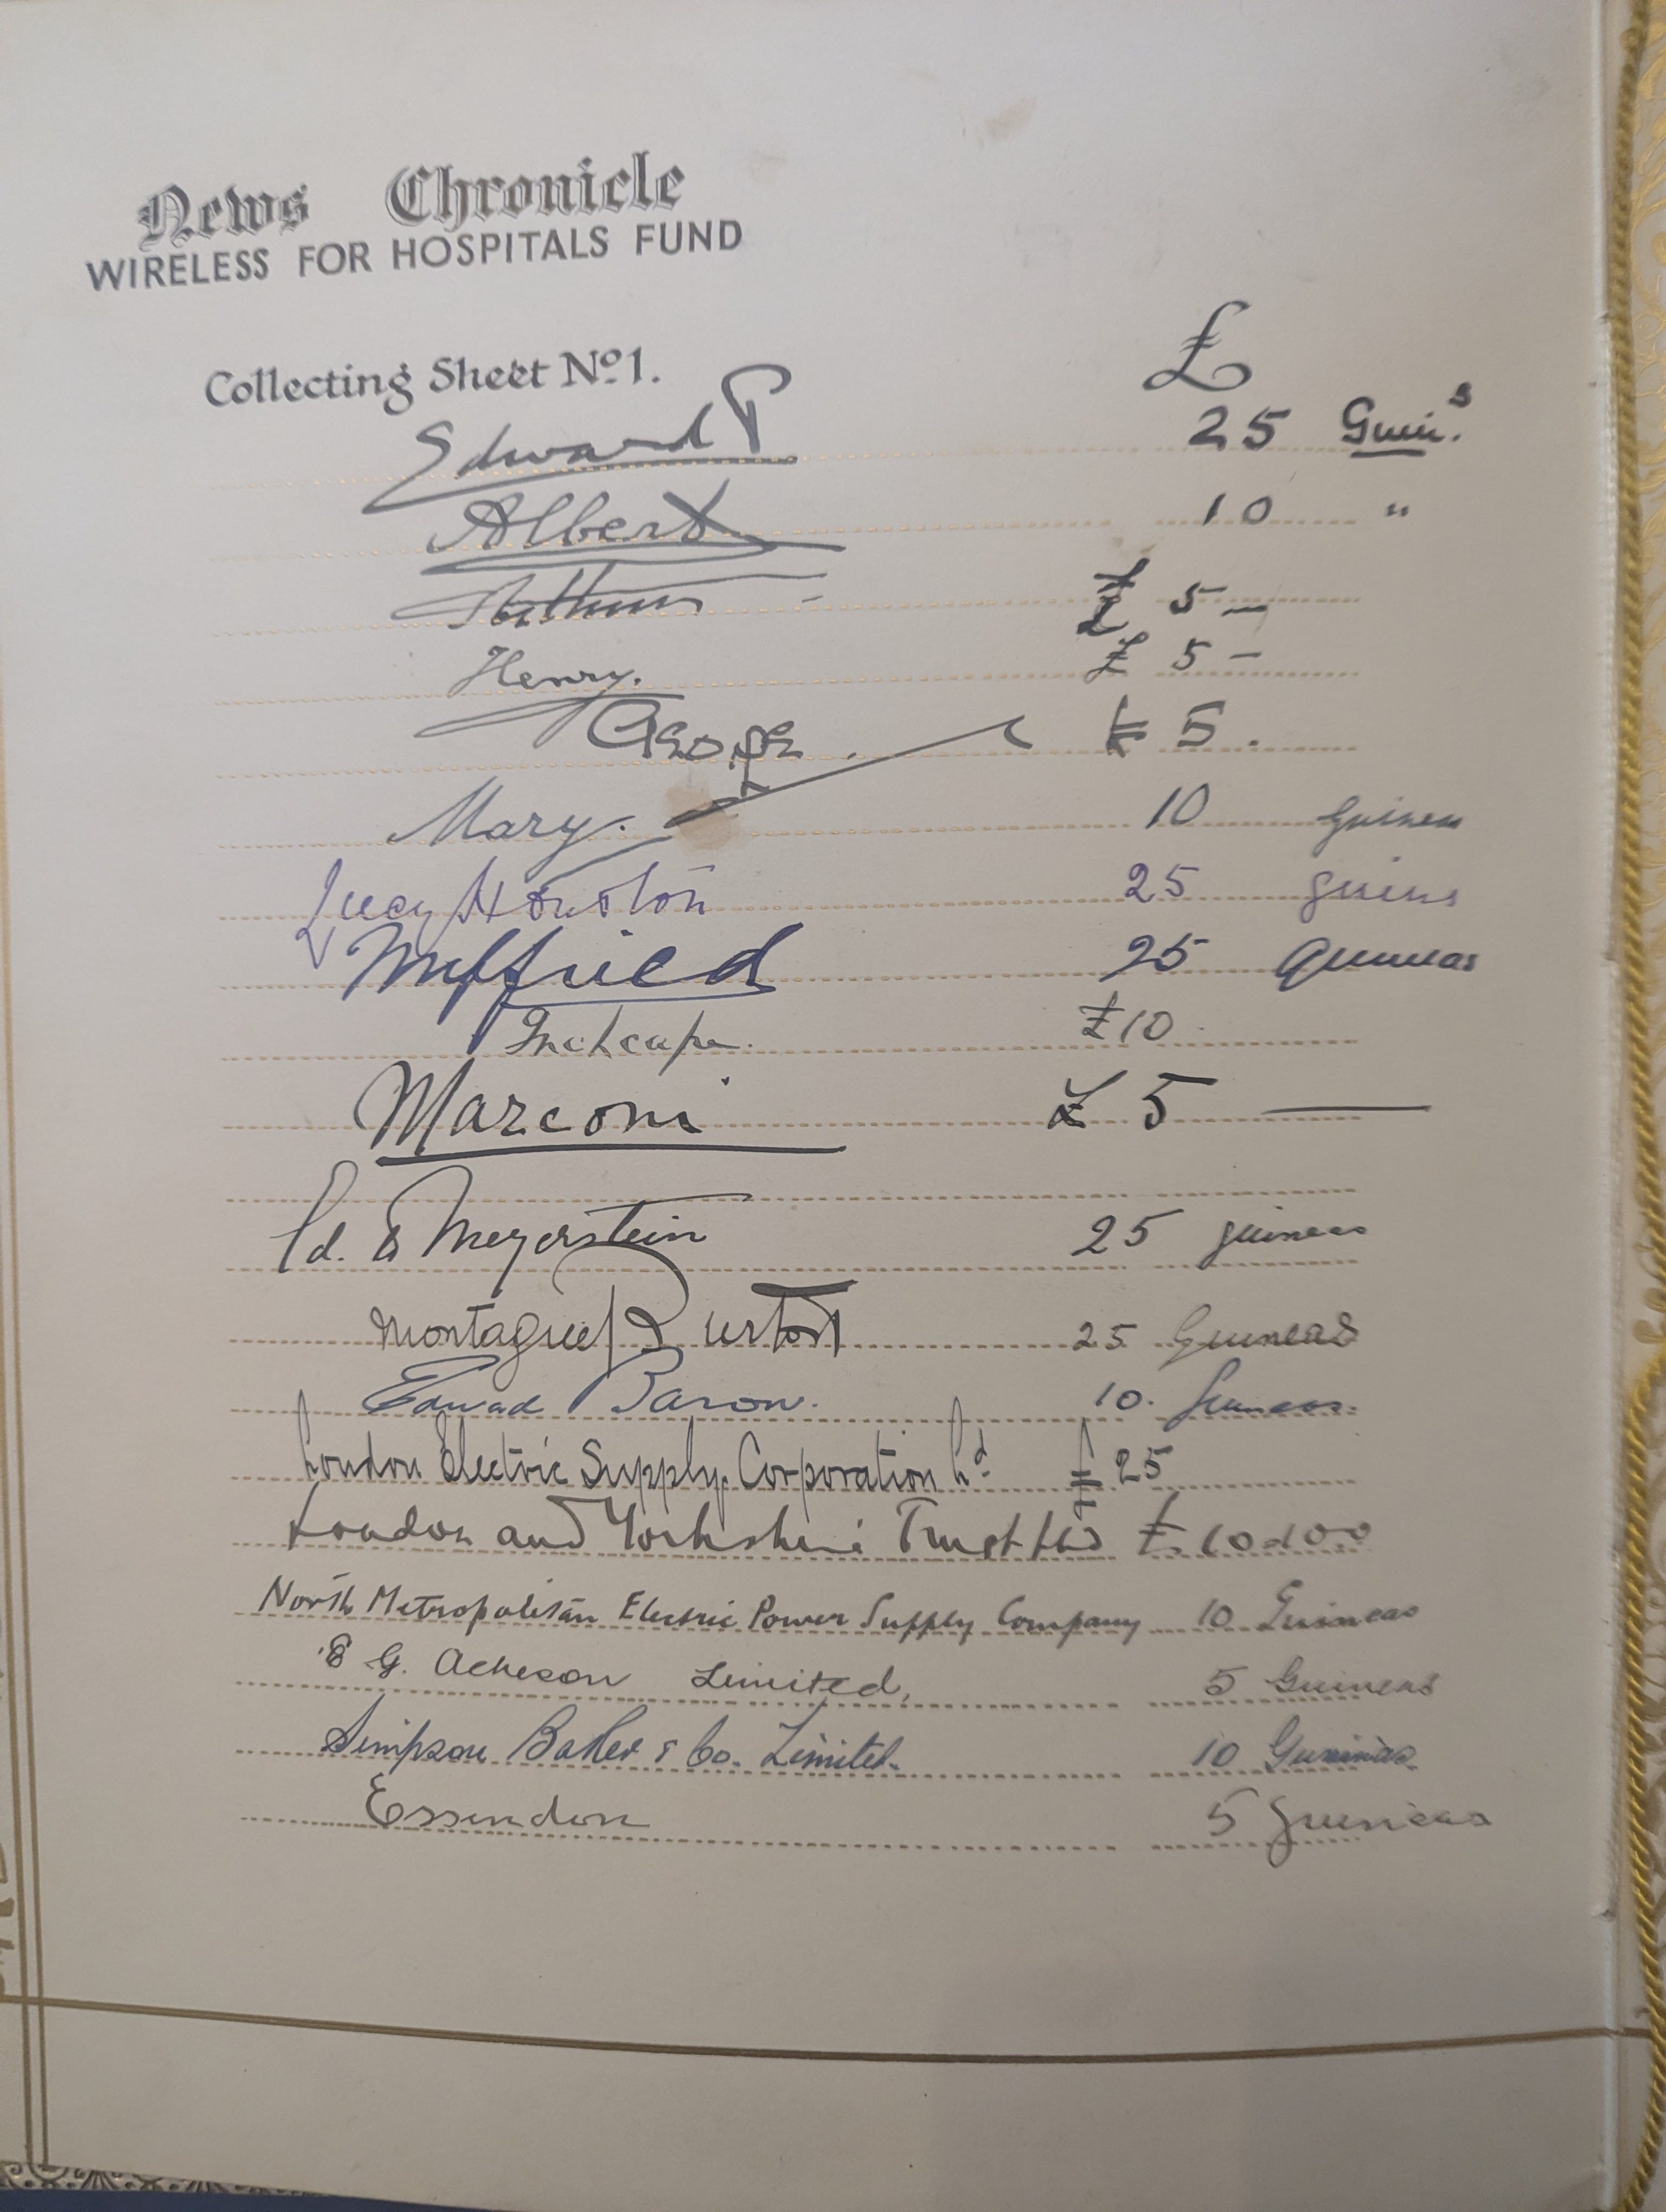 News Chronicle
WIRELESS FOR HOSPITALS FUND
Collecting Sheet No. 1.
£
Edward P 25 Guin.s
Albert 10 "
Arthur - £ 5 -
Henry. £ 5 -
George. £ 5.
Mary. 10 Guineas
Lucy Houston 25 guins
Nuffield 25 Guineas
Inchcape. £10
Marconi £ 5 —
Meyerstein 25 guineas
Montague Burton 25 Guineas
Edward Baron. 10. Guineas.
London Electric Supply Corporation Ld £25
London and Yorkshire Trust Ltd £10.10.0
North Metropolitan Electric Power Supply Company 10 Guineas
E G. Acheson Limited, 5 Guineas
Simpson Baker & Co. Limited. 10 Guineas
Essendon 5 Guineas